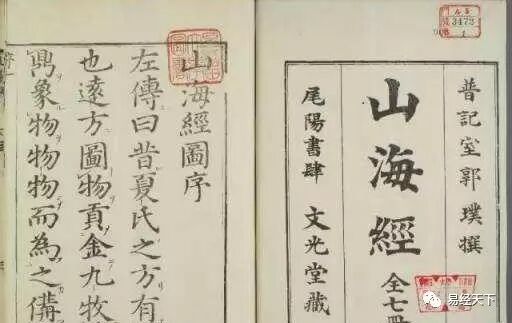 晉記室郭璞撰
山海經 全七冊
尾陽書肆 文光堂藏
山海經圖序
左傳曰昔夏氏之方有
也遠方圖物貢金九牧
鼎象物物物而為之備
3473
1
易经天下